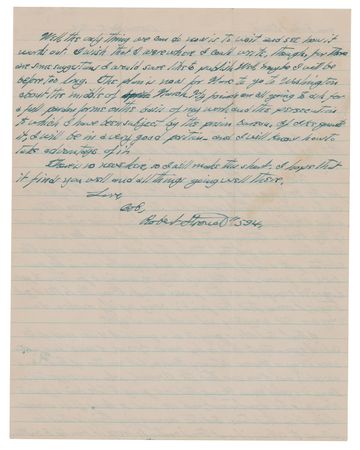 Well the only thing we can do now is to wait and see how it
works out. I wish that I were where I could write, though, for there
are some suggestions I would sure like to publish. Well, maybe I will be
before too long. The plan is now for to go to Washington
about the middle of March. My are all going to ask for
a full pardon on the basis of my work and the persecution
to which I have been subject by the prison bureau. If I get
it, I will be in a very good position and I will know how to
take advantage of it.
There is no news here, so I will make this short. I hope that
it finds you well and all things going well there.
Love,
Bob,
Robert Stroud 594,